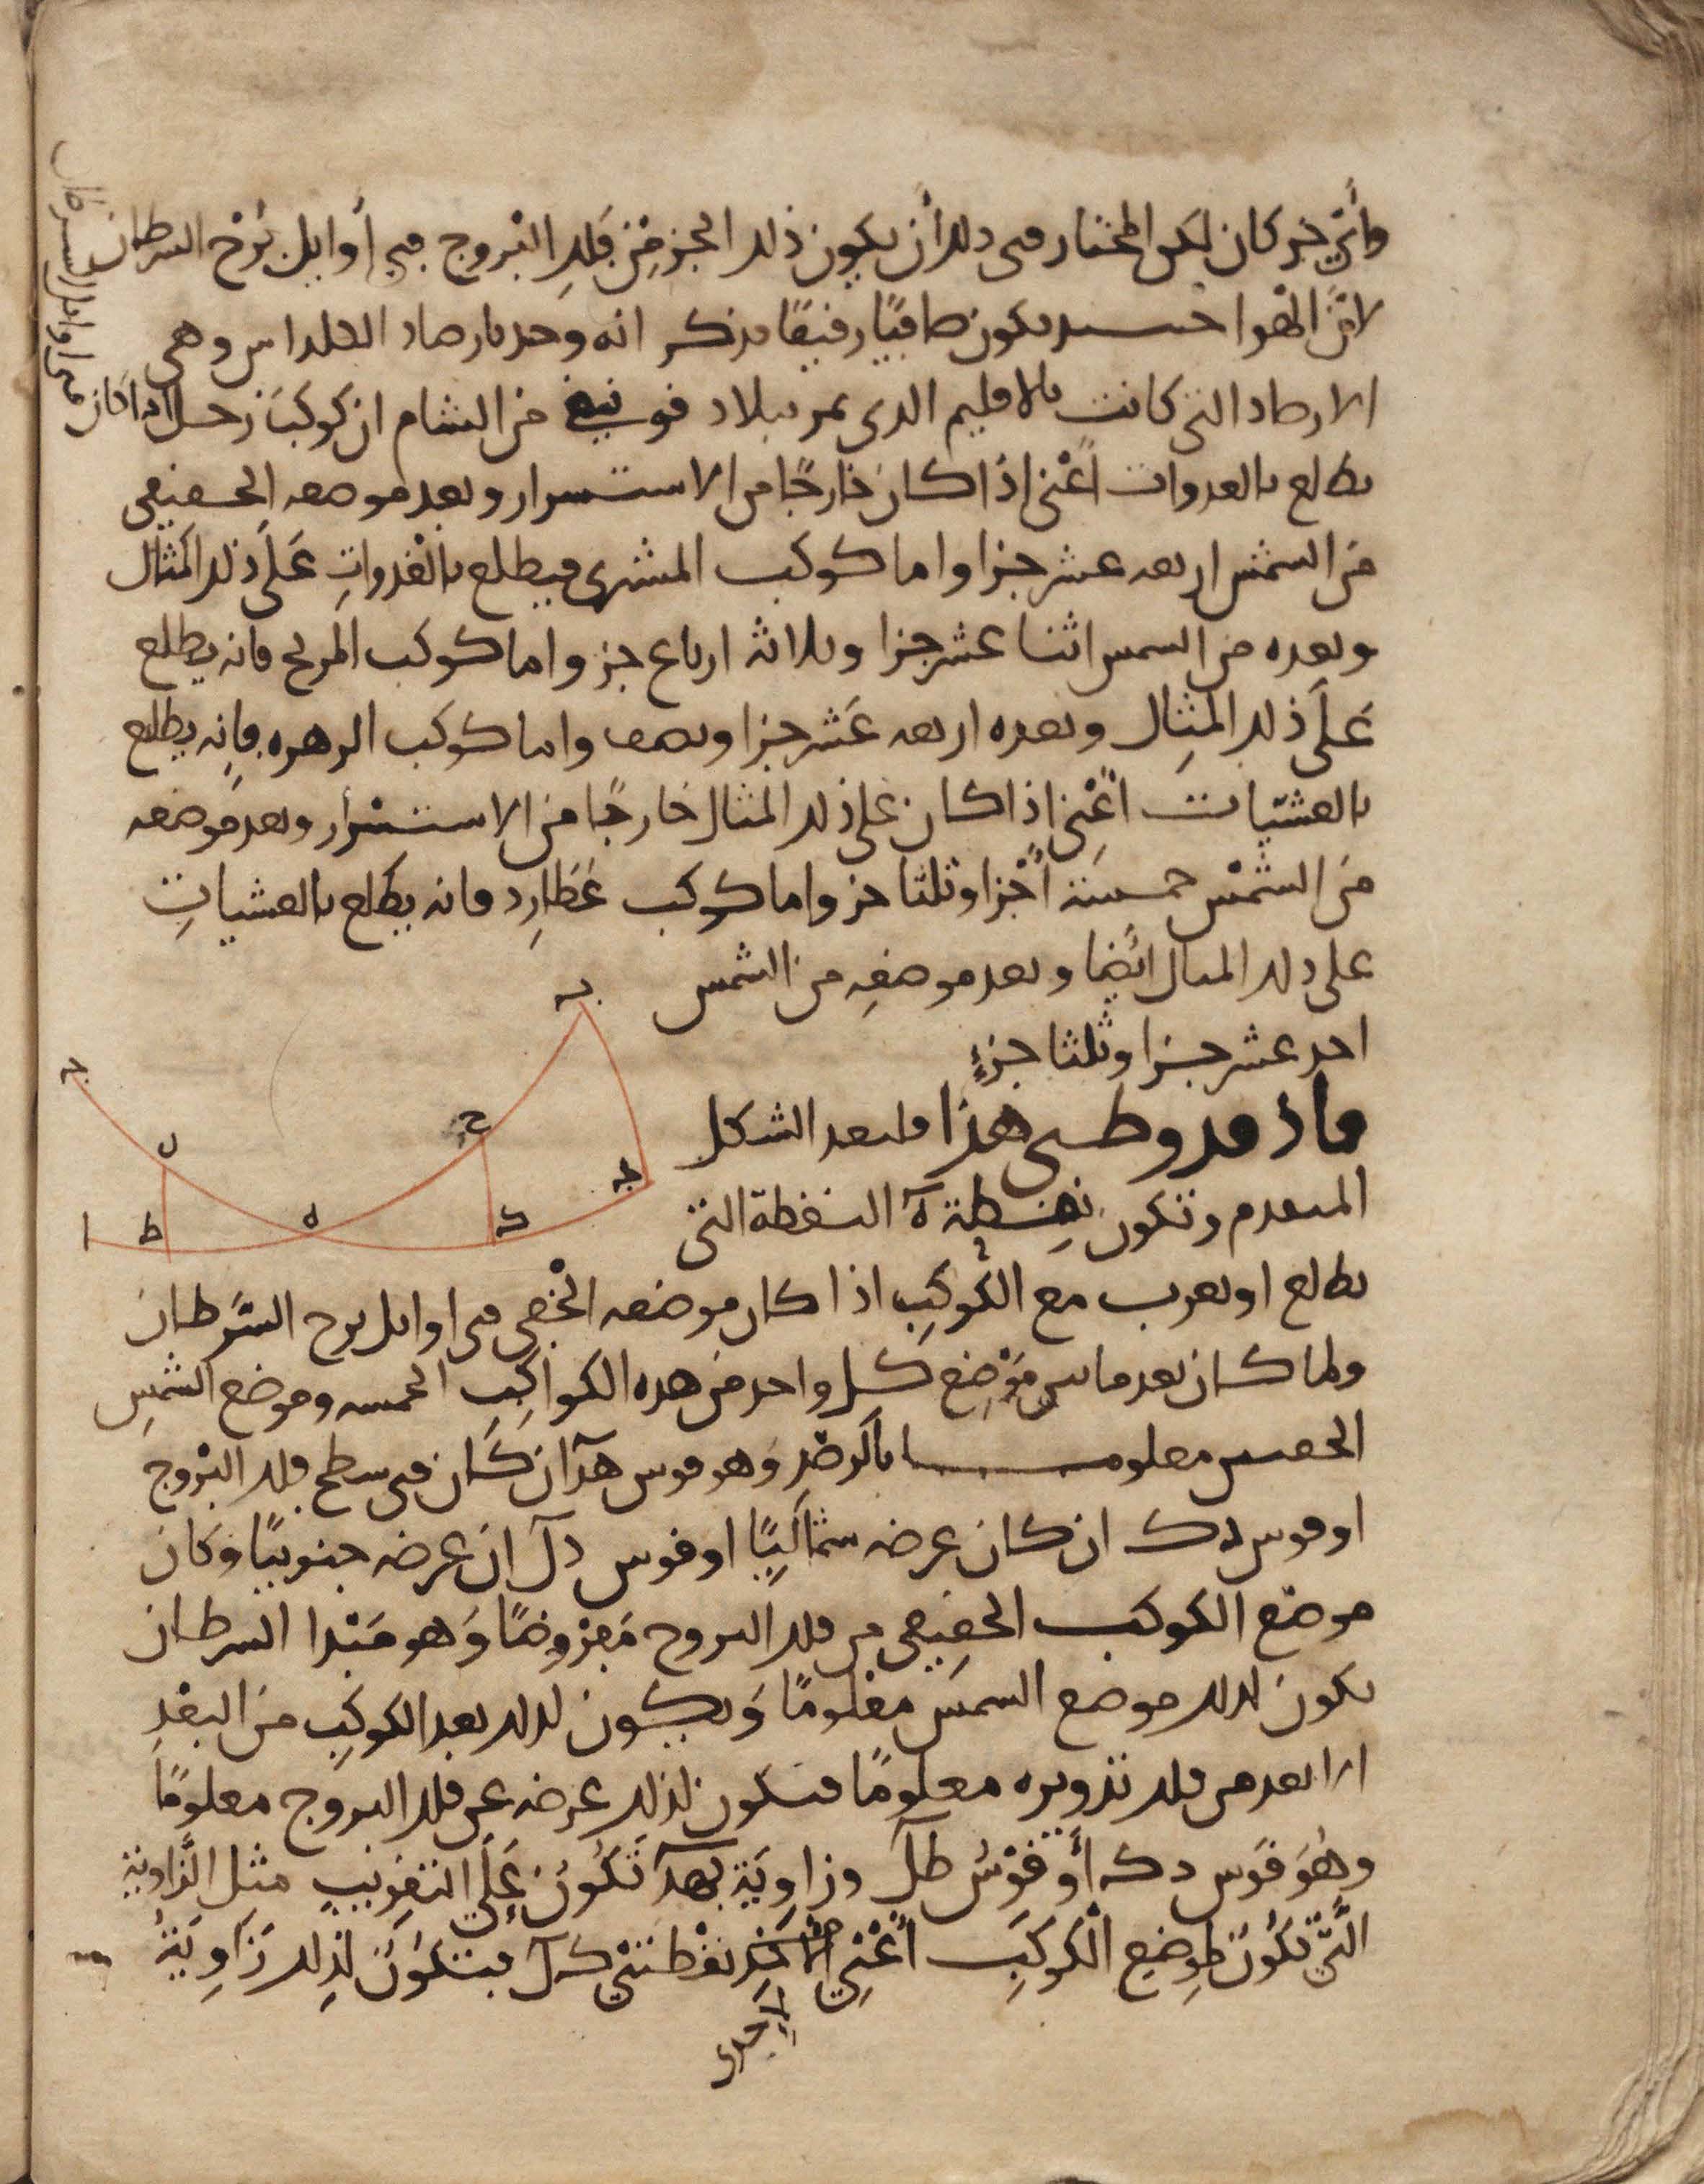 وأي جز كان لكن المختار في ذلك أن يكون ذلك الجز من فلك البروج في أوايل برج السرطان
لان الهوا حينيذ يكون صافيًا رقيقًا فذكر انه وجد بارصاد الكلدانيين وهي
الارصاد التي كانت بالاقليم الذي يمر ببلاد فونيقي من الشام ان كوكب زحل اذا كان
في اوايل السرطان
يطلع بالغدوات أعني اذا كان خارجًا من الاستسرار وبعد موضعه الحقيقي
من الشمس اربعه عشر جزا واما كوكب المشتري فيطلع بالغدوات على ذلك المثال
وبعده من الشمس اثنا عشر جزا وثلاثة ارباع جز واما كوكب المريخ فانه يطلع
على ذلك المثال وبعده اربعه عشر جزا ونصف واما كوكب الزهره فانه يطلع
بالعشيّات أعني اذا كان على ذلك المثال خارجًا من الاستسرار وبعد موضعه
من الشمس خمسة أجزا وثلثا جز واما كوكب عطارد فانه يطلع بالعشيات
على ذلك المثال أيضا وبعد موضعه من الشمس
احد عشر جزا وثلثا جزءٍ
فاذ قد وطي هذا فليعد الشكل
المتقدم وتكون نقطة ه النقطة التي
تطلع او تغرب مع الكوكب اذا كان موضعه الحقيقي في اوايل برج السرطان
ولما كان بعد ما بين موضع كل واحد من هذه الكواكب الخمسه وموضع الشمس
الحقيقيين معلوما بالرصد وهو قوس هد ان كان في سطح فلك البروج
او قوس دك ان كان عرضه شماليًا او قوس دل ان عرضه جنوبيًا وكان
موضع الكوكب الحقيقي من فلك البروج مفروضًا وهو مبدا السرطان
يكون لذلك موضع الشمس معلومًا ويكون لذلك بعد الكوكب من البعد
الابعد من فلك تدويره معلومًا فيكون لذلك عرضه عن فلك البروج معلومًا
وهو قوس دك أو قوس طل وزاوية بهد تكون على التقريب مثل الزاوية
التي تكون لموضع الكوكب أعني لاحدى نقطتي ك ل فتكون لذلك زاوية
لاحدى
ب
ج
ل
ح
ط
ه
ك
ا